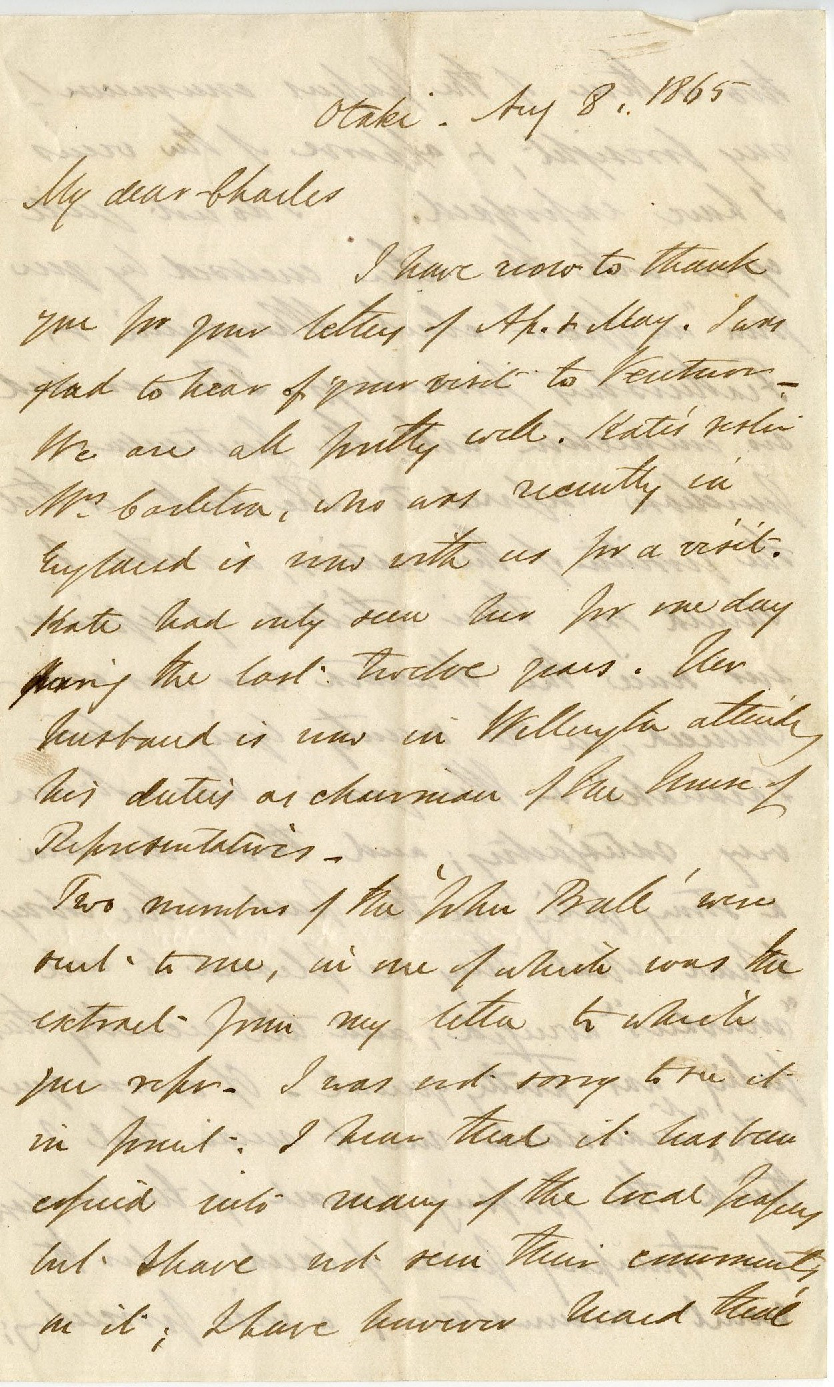 Otaki. Aug 8. 1865
My dear Charles
I have now to thank
you for your letters of Ap. & May. I was
glad to hear of your visit to Ventnor_
We are all pretty well. Kate's sister
Mrs Carleton, who was recently in
England is now with us for a visit.
Kate had only seen her for one day
during the last twelve years. Her
husband is now in Wellington attending
his duties as chairman of the House of
Representatives_
Two numbers of the 'John Bull' were
sent to me, in one of which was the
extract from my letter to which
you refer_ I was not sorry to see it
in print. I hear that it has been
copied into many of the local papers
but I have not seen their comments
on it; I have however heard that